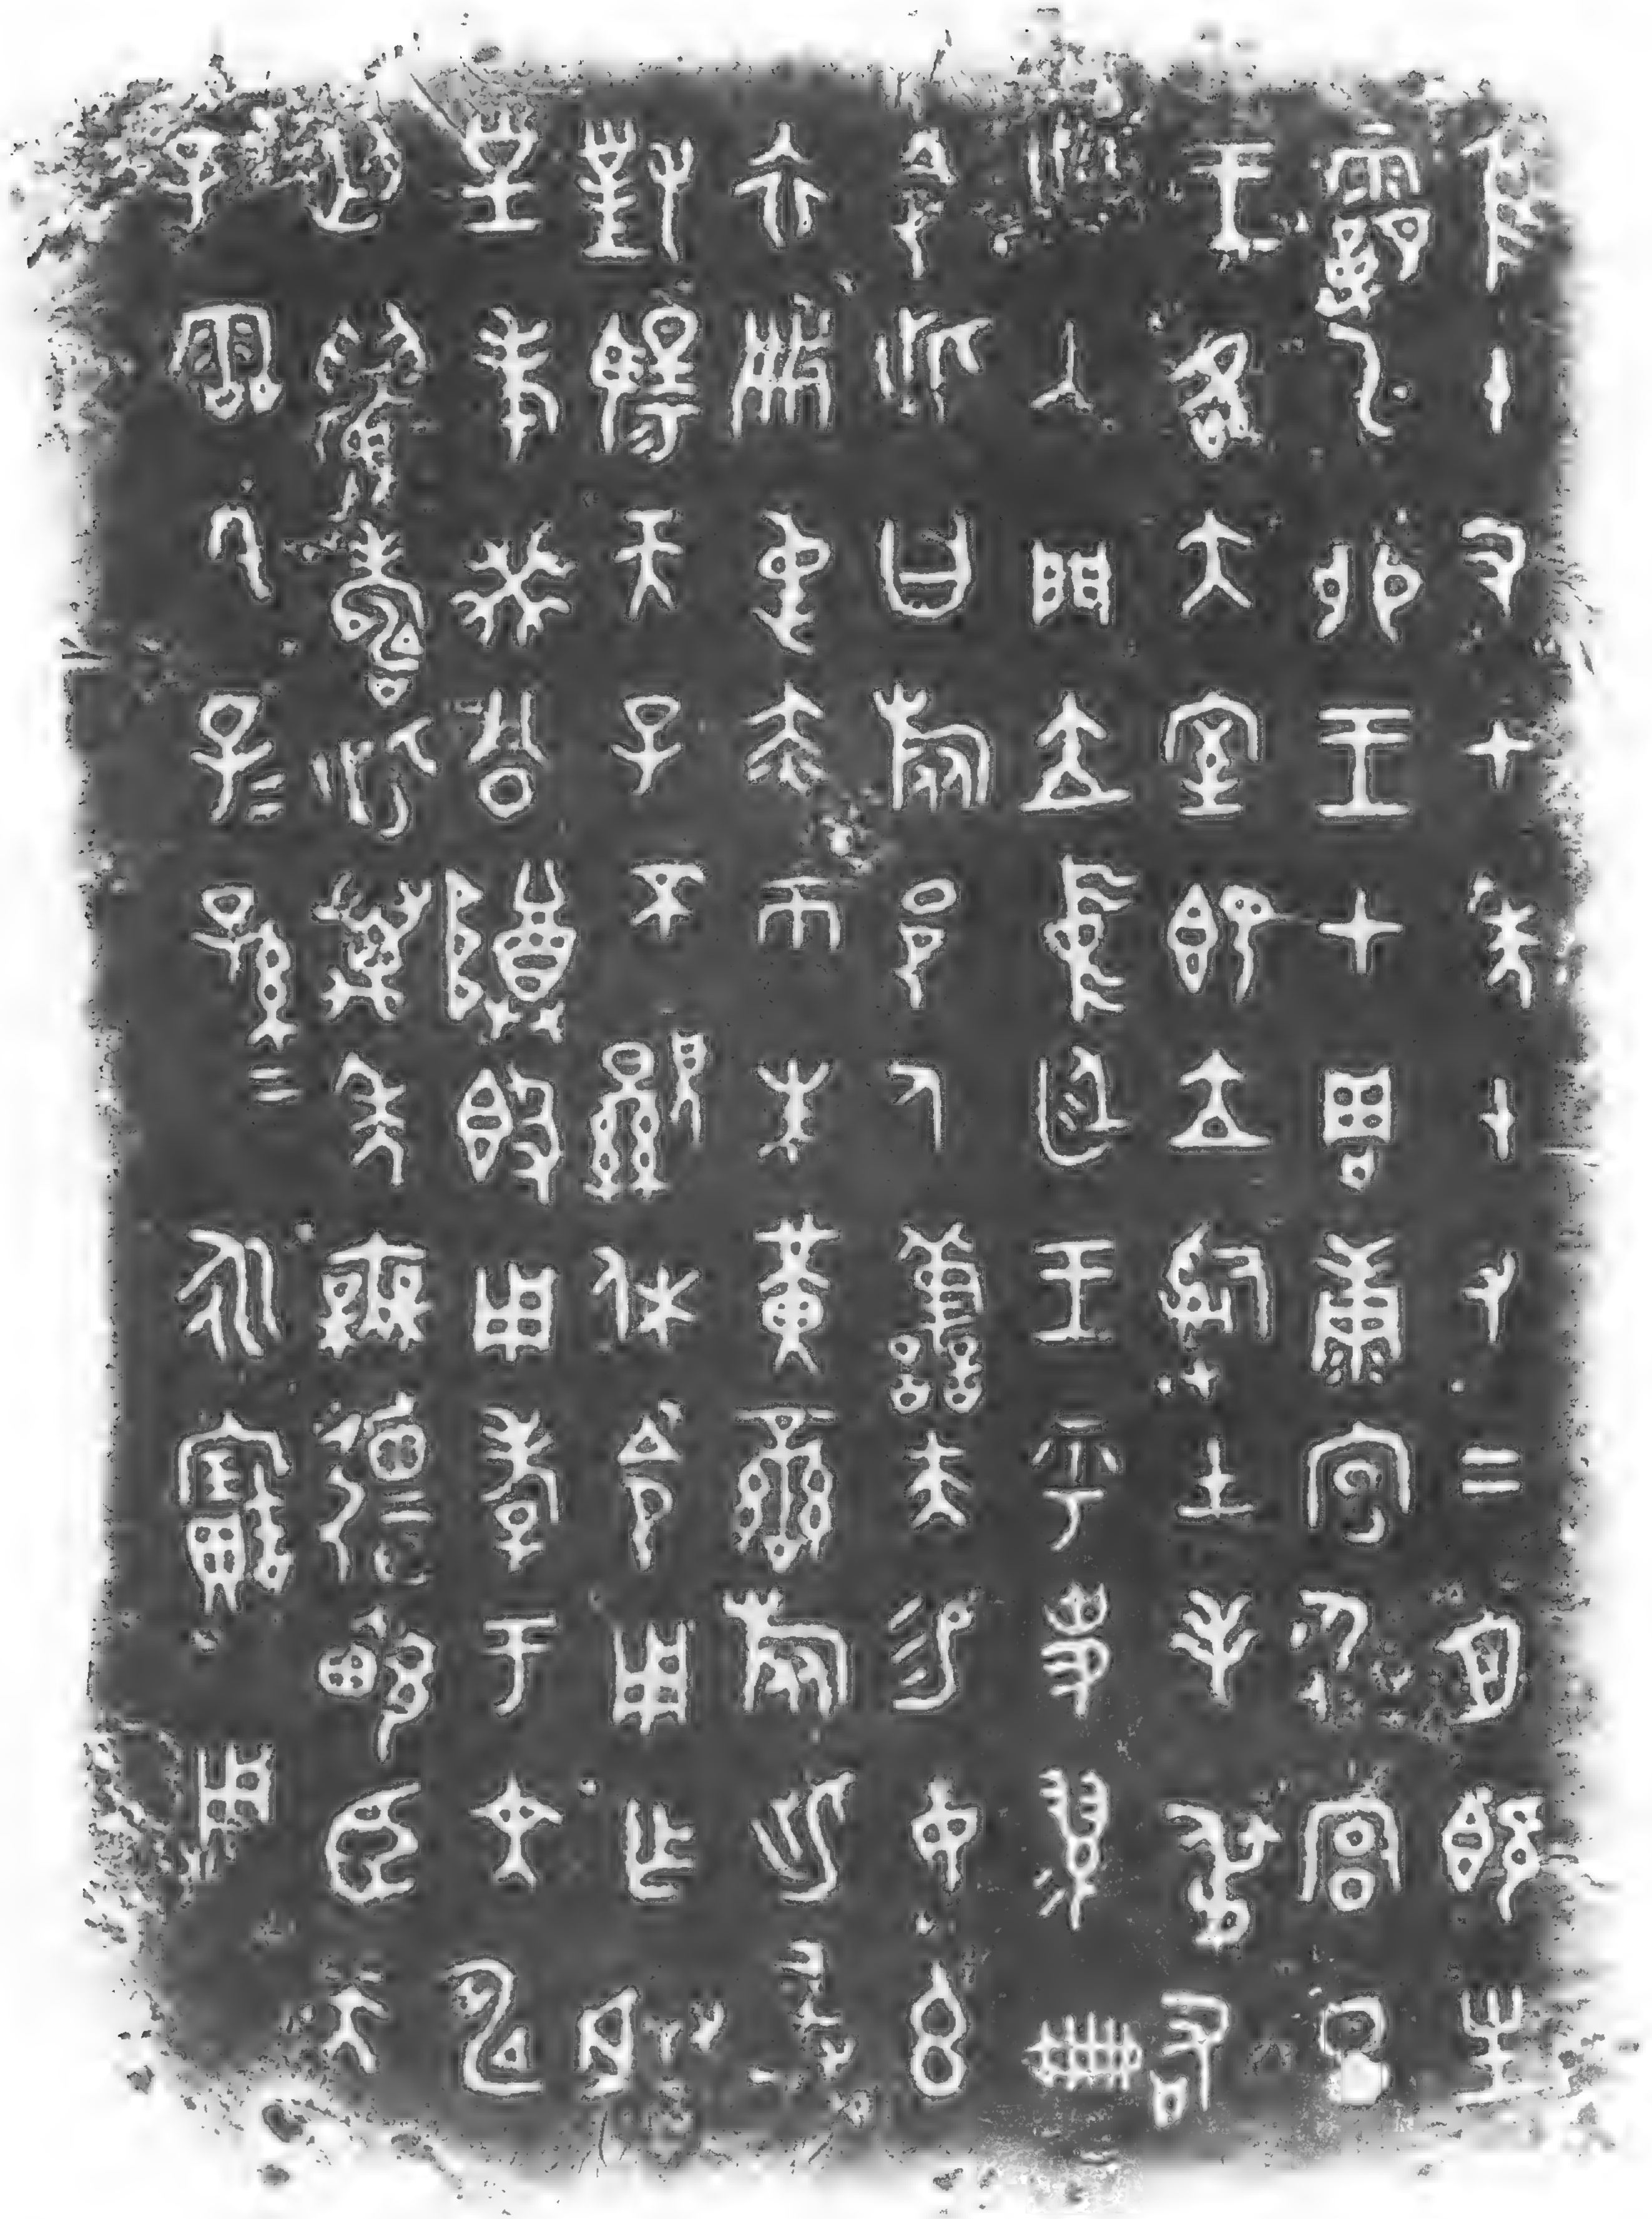 隹十又七年十又二月既生
霸乙卯王才周康宮徲宮旦
王各大室即立𤔲土毛弔右
此入門立中廷王乎史翏冊
令此曰旅邑人善夫易女玄
衣黹屯赤巿朱黃䜌旅此敢
對𩙿天子不顯休令用乍朕
皇考癸公𨺅𣪘用亯孝于文申
匄釁壽此萬年無彊畯臣天
子霝冬子=孫=永寶用